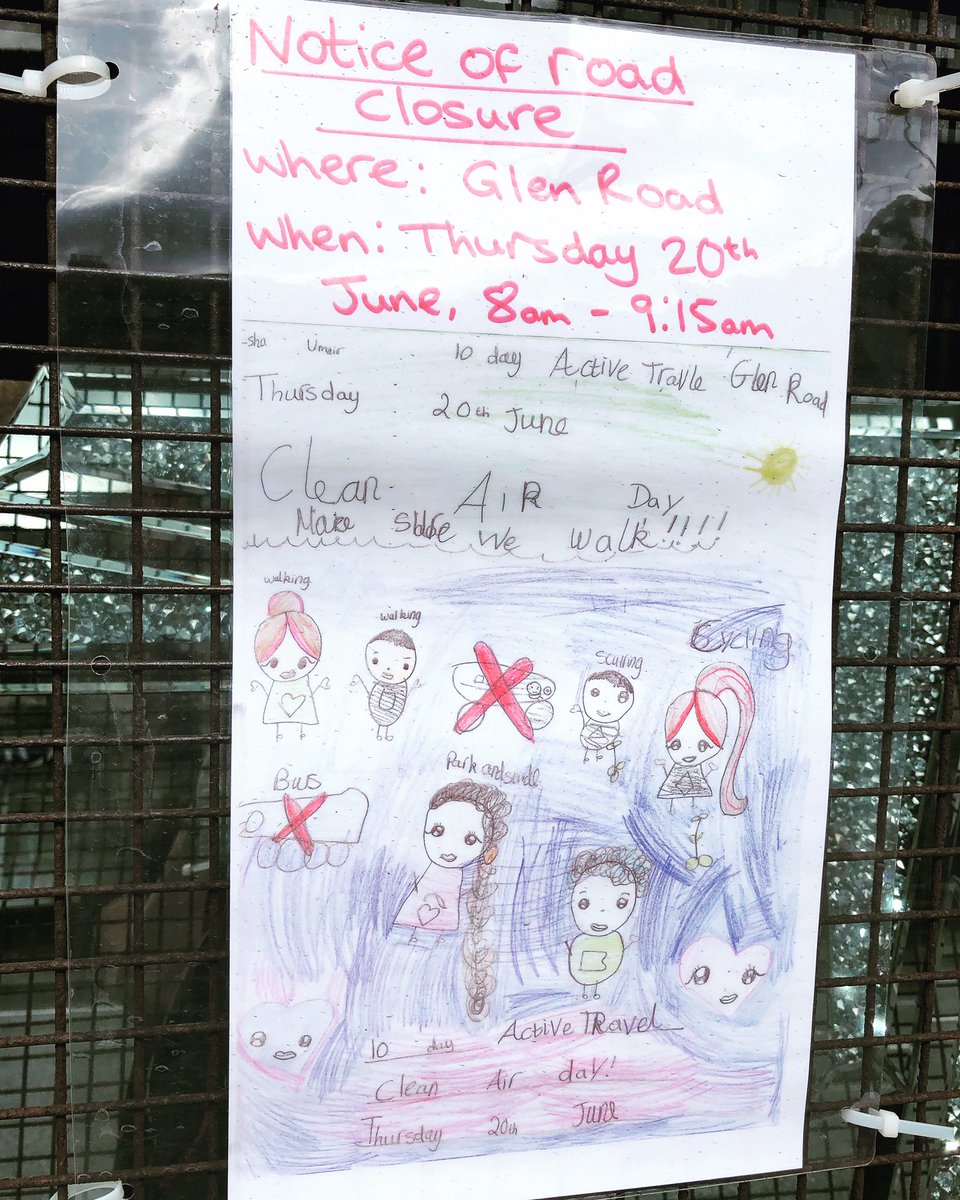 Notice of road
closure
where: Glen Road
when: Thursday 20th
June, 8am - 9:15am
-sha Umair 10 day Active Travle Glen Road
Thursday 20th June
Clean AIR Day
Make we walk!!!!
walking
walking
scutting
Cycling
Bus
Park and
10 day Active TRavel
Clean Air day!
Thursday 20th June